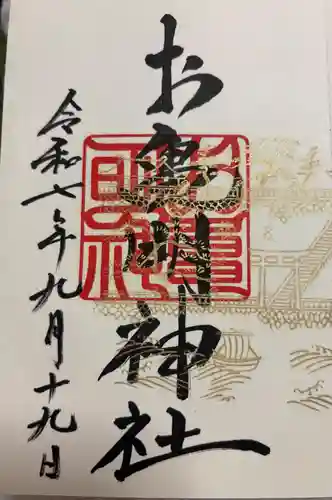 お鳥明神社
令和七年九月十九日